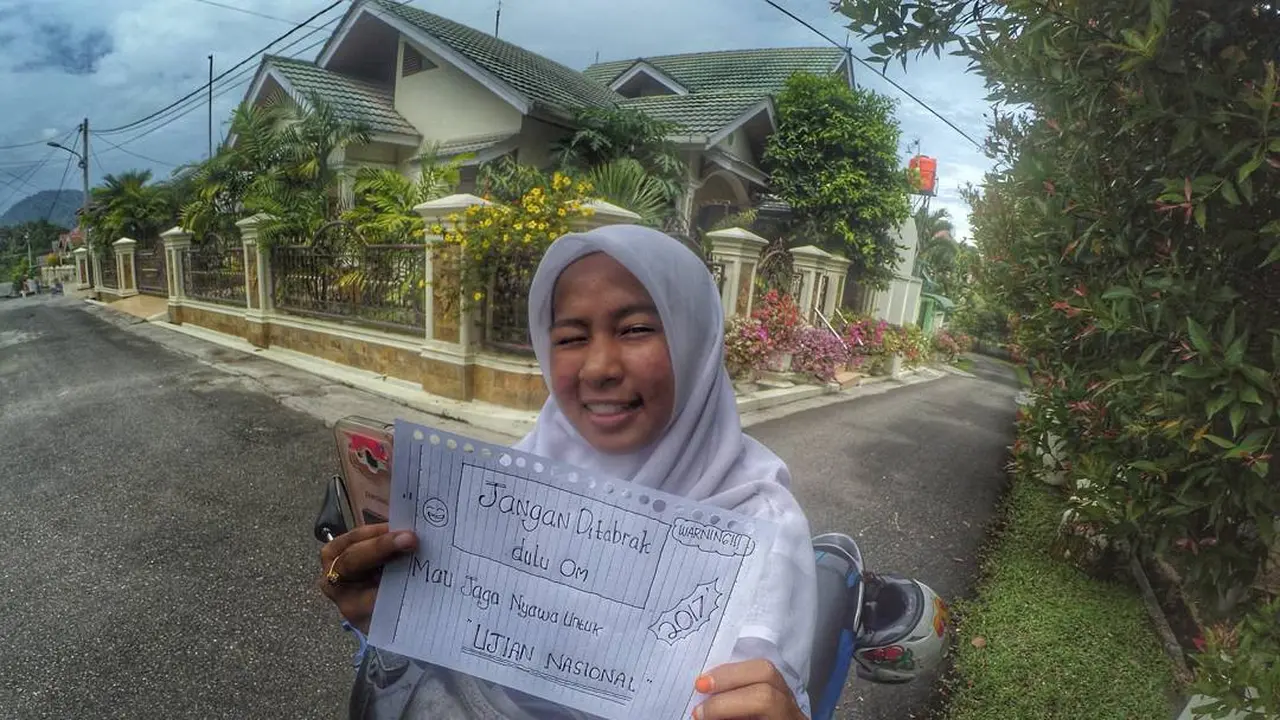 Jangan Ditabrak
dulu Om
WARNING!!!
Mau Jaga Nyawa Untuk
2017
"UJIAN NASIONAL"